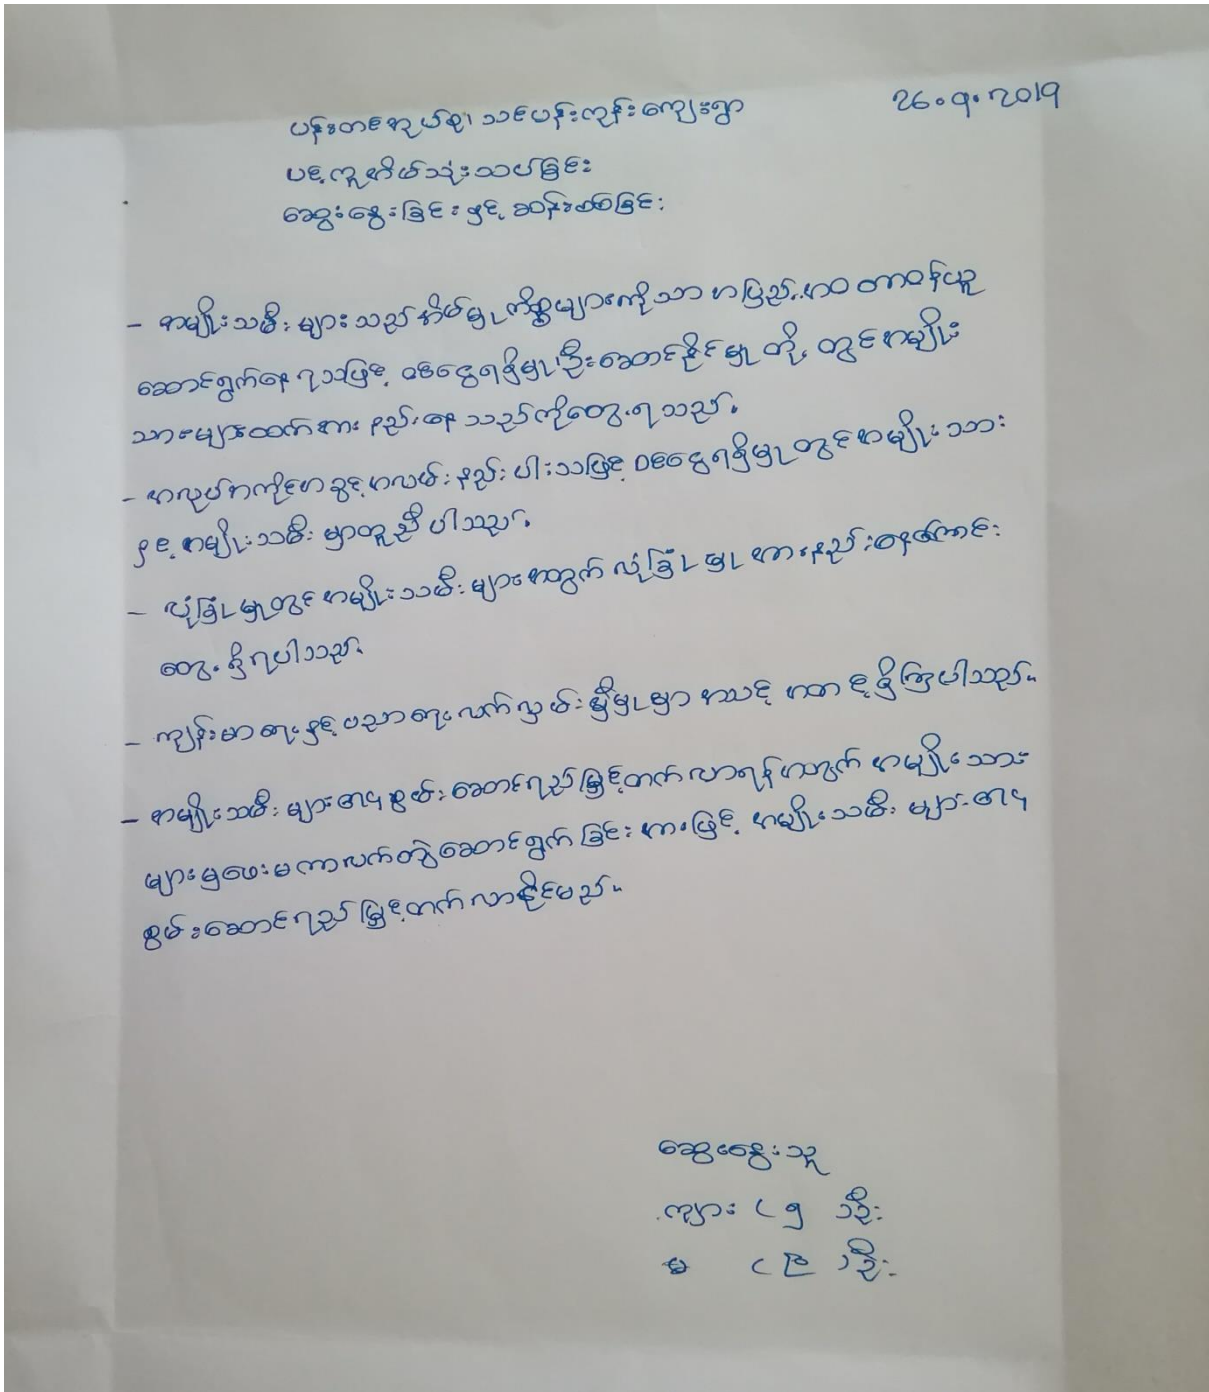 26.9.2019
ပန်းတင်အုပ်စု၊ သင်ပန်းကုန်းကျေးရွာ
ပင့်ကူအိမ်သုံးသပ်ခြင်း
ဆွေးနွေးခြင်းနှင့် ဆန်းစစ်ခြင်း
- အမျိုးသမီးများသည် အိမ်မှုကိစ္စများကိုသာ အပြည့်အဝ တာဝန်ယူ
ဆောင်ရွက်နေရသဖြင့် ဝင်ငွေရရှိမှု၊ ဦးဆောင်နိုင်မှု တို့တွင် အမျိုး
သားများထက်အား နည်းနေသည်ကိုတွေ့ရသည်။
- အလုပ်အကိုင်အခွင့်အလမ်း နည်းပါးသဖြင့် ဝင်ငွေရရှိမှုတွင် အမျိုးသား
နှင့် အမျိုးသမီး မှာတူညီပါသည်။
- လုံခြုံမှုတွင် အမျိုးသမီးများအတွက် လုံခြုံမှု အားနည်းနေကြောင်း
တွေ့ရှိရပါသည်။
- ကျန်းမာရေးနှင့် ပညာရေး လက်လှမ်းမှီမှုမှာ အသင့်အတင့်ရှိကြပါသည်။
- အမျိုးသမီးများ၏ စွမ်းဆောင်ရည်မြှင့်တက်လာရန်အတွက် အမျိုးသား
များမှဖေးမကာလက်တွဲဆောင်ရွက်ခြင်းအားဖြင့် အမျိုးသမီးများ၏
စွမ်းဆောင်ရည်မြှင့်တက်လာနိုင်မည်။
ဆွေးနွေးသူ
ကျား ( ၅ )ဦး
မ ( ) ဦး